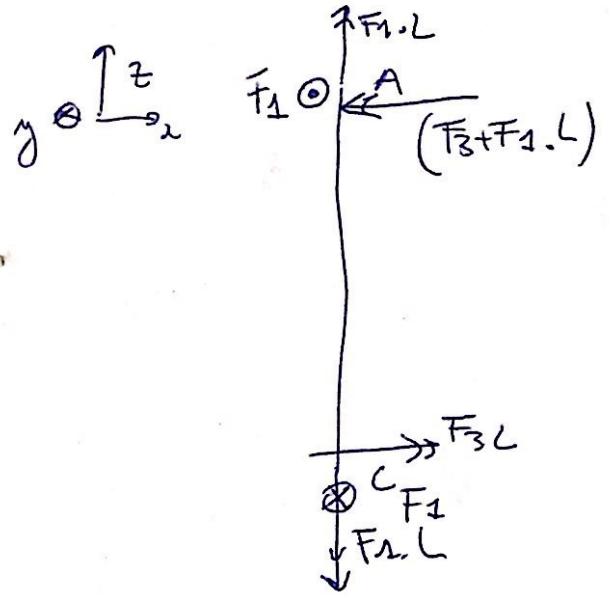 F1.L
z
y
x
F1
A
(F3+F1.L)
F3L
C
F1
F1.L